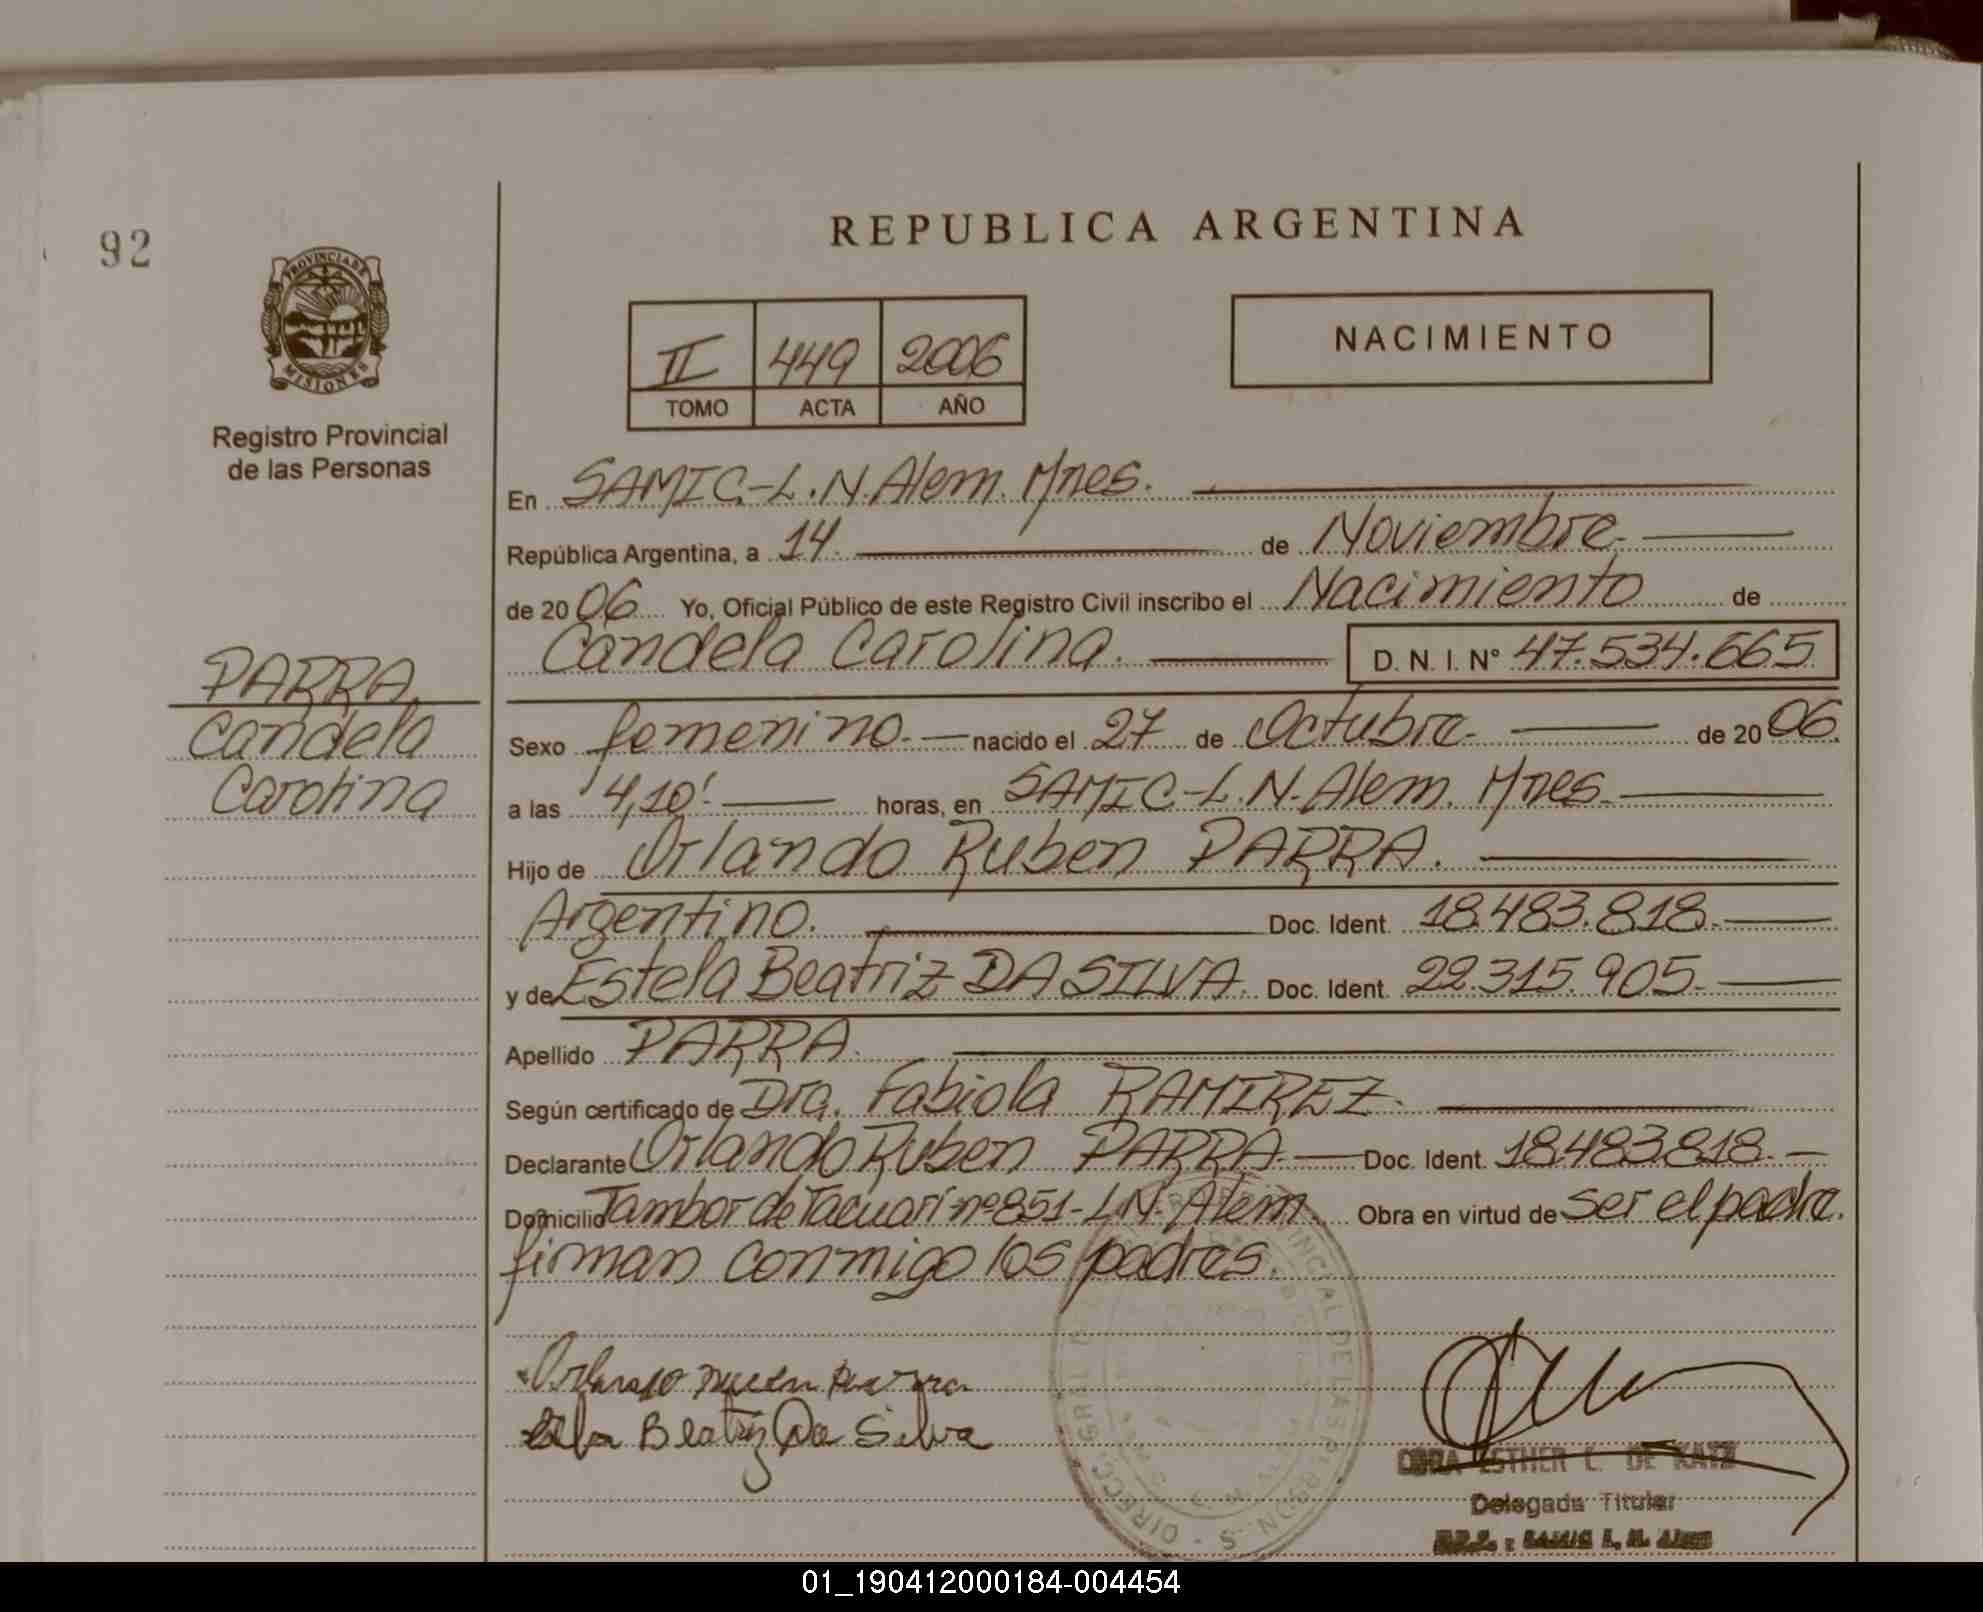 92
REPUBLICA ARGENTINA
PROVINCIA DE
MISIONES
Registro Provincial
de las Personas
II 449 2006
TOMO ACTA AÑO
NACIMIENTO
En SAMIC-L.N.Alem. Mnes.
República Argentina, a 14. de Noviembre.
de 2006 Yo, Oficial Público de este Registro Civil inscribo el Nacimiento de
Candela Carolina. D. N. I. N° 47.534.665
PARRA
Candela
Carolina
Sexo femenino. nacido el 27 de Octubre. de 2006.
a las 4,10'. horas, en SAMIC-L.N.Alem. Mnes.
Hijo de Orlando Ruben PARRA.
Argentino. Doc. Ident. 18.483.818.
y de Estela Beatriz DA SILVA. Doc. Ident. 22.315.905.
Apellido PARRA.
Según certificado de Dra. Fabiola RAMIREZ.
Declarante Orlando Ruben PARRA. Doc. Ident. 18.483.818.
Domicilio Tambor de Tacuarí nº 851-L.N. Alem. Obra en virtud de ser el padre.
firman conmigo los padres.
Beatriz Da Silva
ESTHER L. DE KATZ
Delegada Titular
01_190412000184-004454